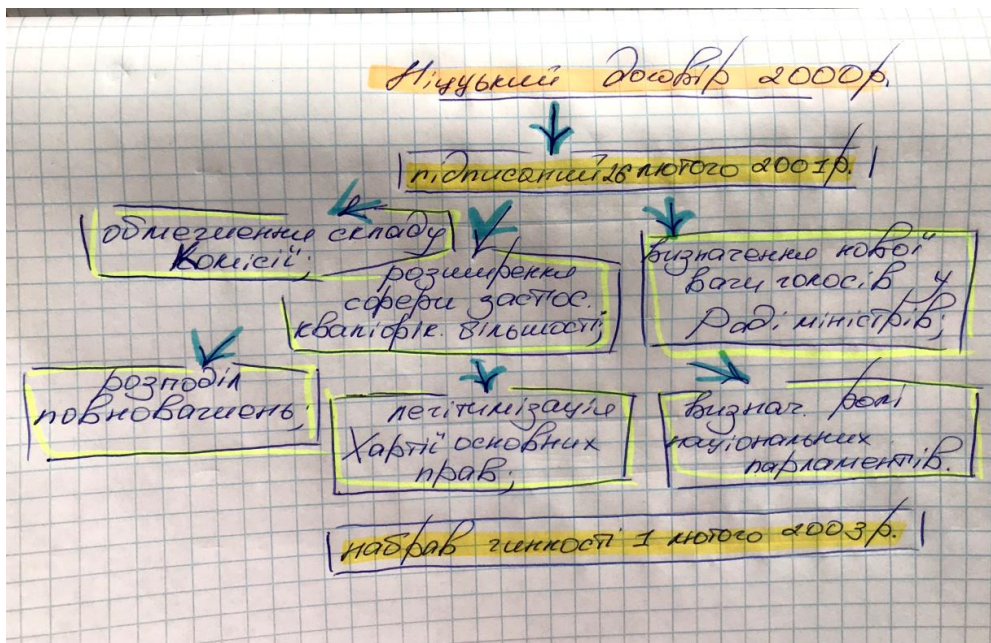 Ніццький договір 2000р.
підписаний 26 лютого 2001р.
обмеження складу
Комісії;
розширення
сфери застос.
кваліфік. більшості;
визначення нової
ваги голосів у
Раді міністрів;
розподіл
повноважень;
легітимізація
Хартії основних
прав;
визнач. ролі
національних
парламентів.
набрав чинності 1 лютого 2003р.